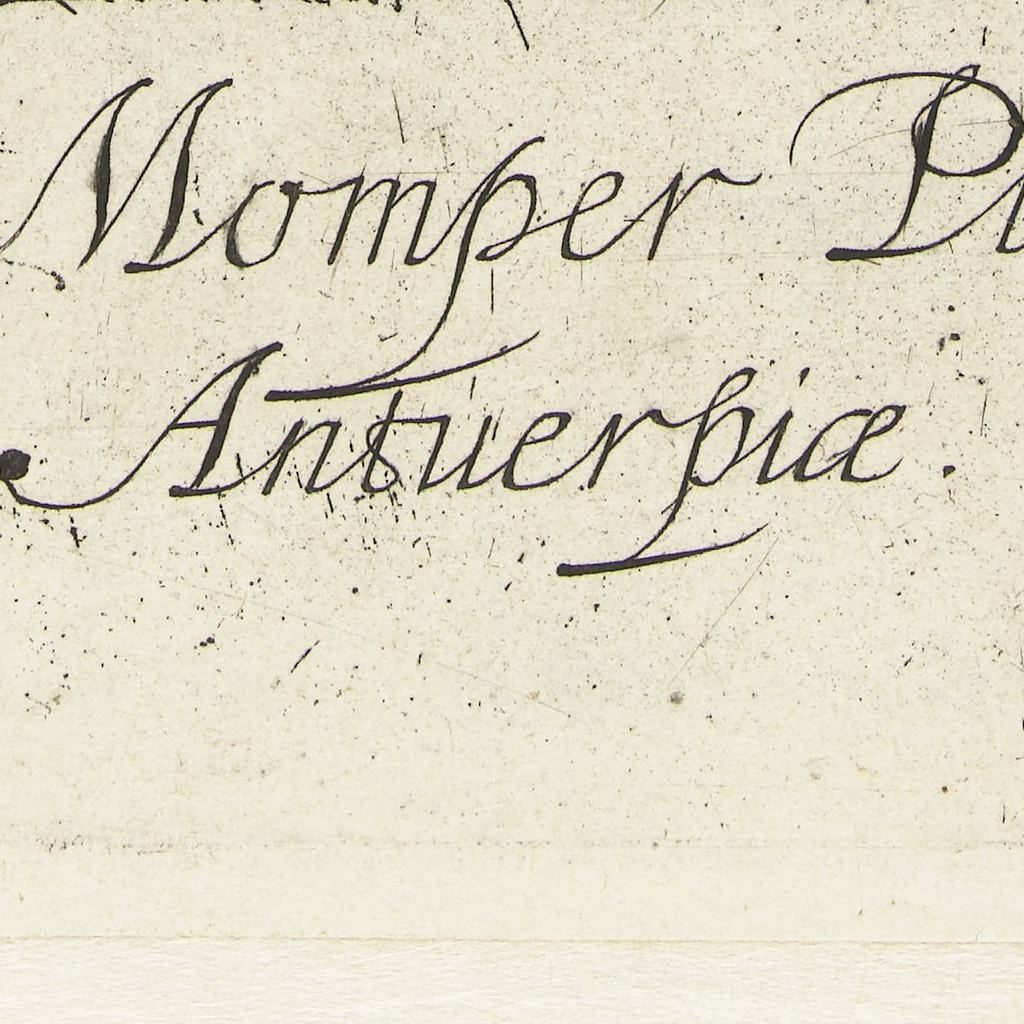 Momper
Antuerpiæ.